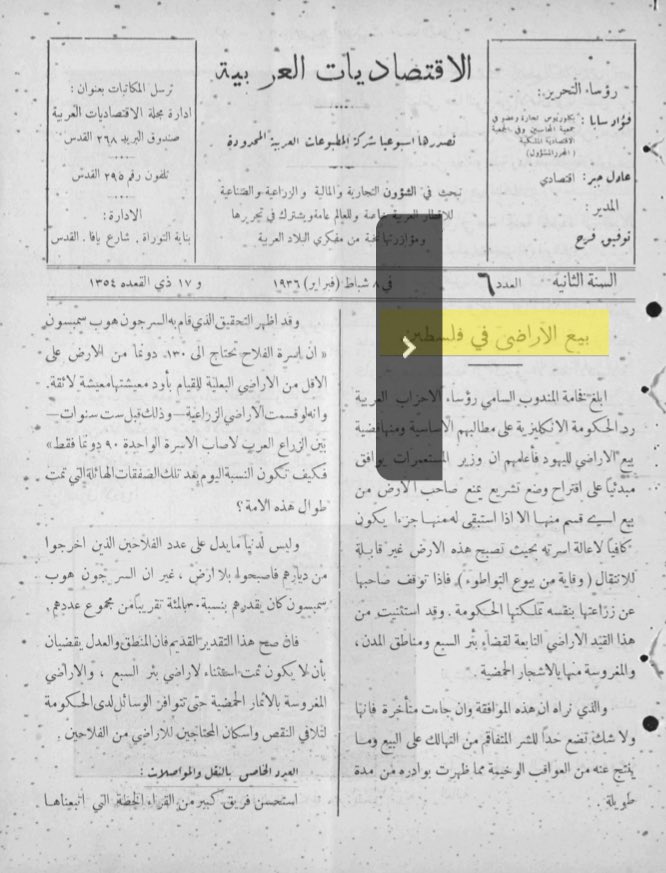 الاقتصاديات العربية
تصدرها اسبوعيا شركة المطبوعات العربية المحدودة
تبحث في الشؤون التجارية والمالية والزراعية والصناعية
للاقطار العربية خاصة وللعالم عامة ويشترك في تحريرها
ومؤازرتها نخبة من مفكري البلاد العربية
رؤساء التحرير:
فؤاد سابا:
بكالوريوس تجارة وعضو في
جمعية المحاسبين وفي الجمعية
الاقتصادية الملكية
(المحرر المسؤول)
عادل جبر: اقتصادي
المدير:
توفيق فرح
ترسل المكاتبات بعنوان:
ادارة مجلة الاقتصاديات العربية
صندوق البريد ٢٦٨ القدس
تلفون رقم ٢٩٥ القدس
الادارة:
بناية التوراة. شارع يافا. القدس
السنة الثانية العدد ٦ في ٨ شباط (فبراير) ١٩٣٦ و ١٧ ذي القعده ١٣٥٤
بيع الاراضي في فلسطين
ابلغ فخامة المندوب السامي رؤساء الاحزاب العربية
رد الحكومة الانكليزية على مطالبهم الاساسية ومنها قضية
بيع الاراضي لليهود فأعلمهم ان وزير المستعمرات يوافق
مبدئياً على اقتراح وضع تشريع يمنع صاحب الارض من
بيع اي قسم منها الا اذا استبقى له منها جزءا يكون
كافياً لاعالة اسرته بحيث تصبح هذه الارض غير قابلة
للانتقال (وقاية من بيوع التواطوء)، فاذا توقف صاحبها
عن زراعتها بنفسه تملكتها الحكومة. وقد استثنيت من
هذا القيد الاراضي التابعة لقضاء بئر السبع ومناطق المدن،
والمغروسة منها بالاشجار الحمضية.
والذي نراه ان هذه الموافقة وان جاءت متأخرة فانها
ولا شك تضع حداً للشر المتفاقم من التهالك على البيع وما
ينتج عنه من العواقب الوخيمة مما ظهرت بوادره من مدة
طويلة.
وقد اظهر التحقيق الذي قام به السر جون هوب سمبسون
«ان اسرة الفلاح تحتاج الى ١٣٠ دونما من الارض على
الاقل من الاراضي البعلية للقيام بأود معيشتها معيشة لائقة.
وانه لو قسمت الاراضي الزراعية—وذلك قبل ست سنوات—
بين الزراع العرب لاصاب الاسرة الواحدة ٩٠ دونما فقط»
فكيف تكون النسبة اليوم بعد تلك الصفقات الهائلة التي تمت
طوال هذه الامة؟
وليس لدينا ما يدل على عدد الفلاحين الذين اخرجوا
من ديارهم فاصبحوا بلا ارض، غير ان السر جون هوب
سمبسون كان يقدرهم بنسبة ٣٠ بالمئة تقريبا من مجموع عددهم.
فان صح هذا التقدير القديم فان المنطق والعدل يقضيان
بأن لا يكون ثمت استثناء لاراضي بئر السبع، والاراضي
المغروسة بالاثمار الحمضية حتى تتوافر الوسائل لدى الحكومة
لتلافي النقص واسكان المحتاجين للاراضي من الفلاحين.
العدد الخاص بالنقل والمواصلات:
استحسن فريق كبير من القراء الخطة التي اتبعناها